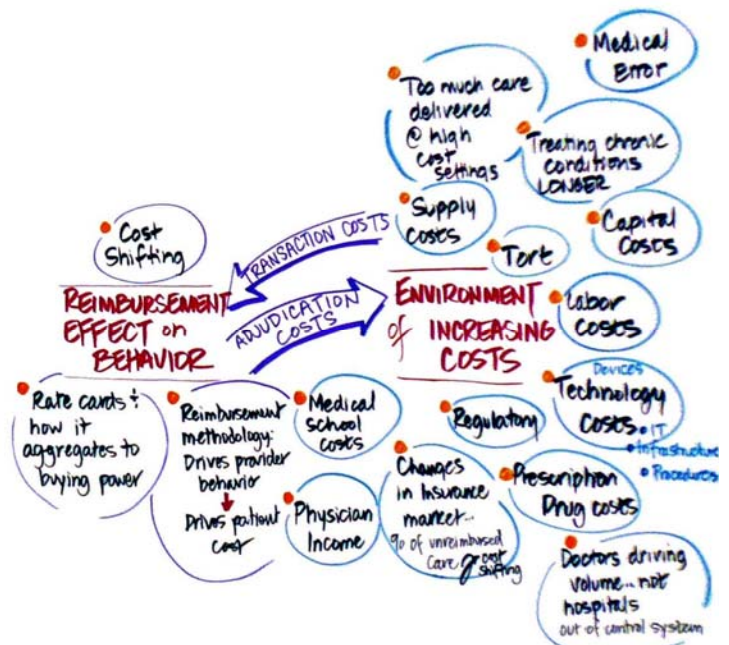 Medical
Error
Too much care
delivered
@ high
cost
settings
Treating chronic
conditions
LONGER
Supply
Costs
Capital
Costs
Tort
Cost
Shifting
TRANSACTION COSTS
REIMBURSEMENT
EFFECT on
BEHAVIOR
ADJUDICATION
COSTS
ENVIRONMENT
of INCREASING
COSTS
Labor
Costs
Devices
Technology
Costs
• IT
• Infrastructure
• Procedures
Rate cards &
how it
aggregates to
buying power
Reimbursement
methodology:
Drives provider
behavior
Drives patient
cost
Medical
school
costs
Physician
Income
Regulatory
Changes
in Insurance
market...
% of unreimbursed
Care
cost
shifting
Prescription
Drug costs
Doctors driving
volume...not
hospitals
out of control system